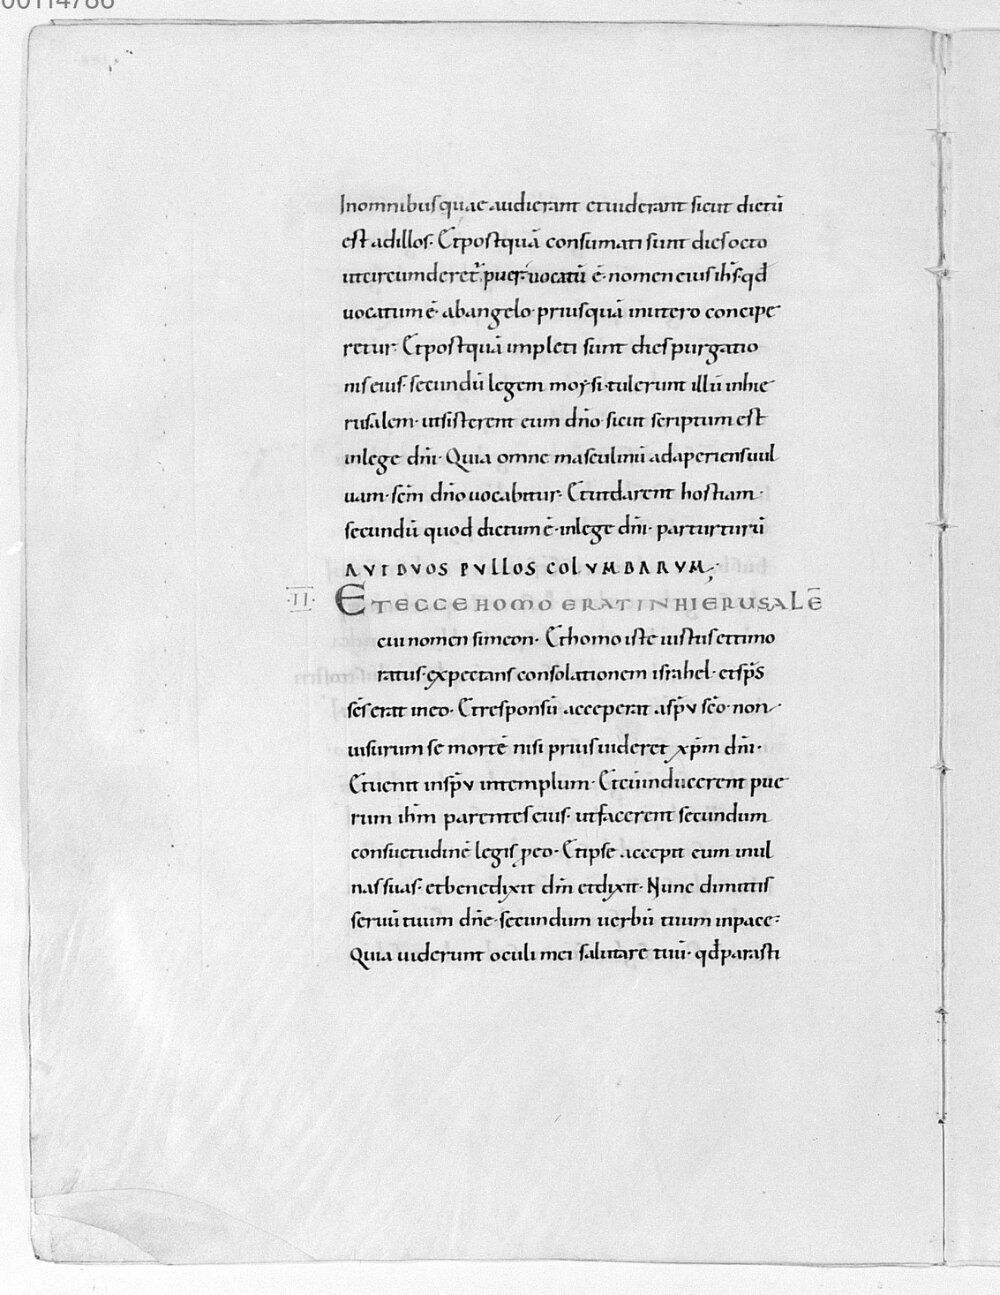 00114786
Inomnibus quae audierant etuiderant sicut dictū
est adillos· Etpostquā consumati sunt dies octo
utcircumderet̄ puer· uocatū ē· nomen eius ih̅s· qđ
uocatum ē· abangelo· priusquā inutero concipe
retur· Etpostquā impleti sunt dies purgatio
nis eius· secundū legem moysi· tulerunt illū inhie
rusalem· utsisterent eum dn̅o· sicut scriptum est
inlege dn̅i· Quia omne masculinū adaperiens uul
uam· sc̅m dn̅o uocabitur· Etutdarent hostiam·
secundū quod dictum ē· inlege dn̅i· par turturū
AUT DVOS PVLLOS COLVMBARVM;
·II· ET ECCE HOMO ERAT IN HIERUSALĒ
cui nomen simeon· Ethomo iste iustus ettimo
ratus· expectans consolationem israhel· etsp̅s
sc̅s erat ineo· Etresponsū acceperat asp̅u sc̅o· non
uisurum se mortē nisi prius uideret xp̅m dn̅i·
Etuenit insp̅u intemplum· Etcū inducerent pue
rum ih̅m parentes eius· utfacerent secundum
consuetudinē legis ꝓeo· Etipse accepit eum inul
nas suas· etbenedixit dm̅ etdixit· Nunc dimittis
seruū tuum dn̅e· secundum uerbū tuum inpace:
Quia uiderunt oculi mei salutare tuū· qđ parasti